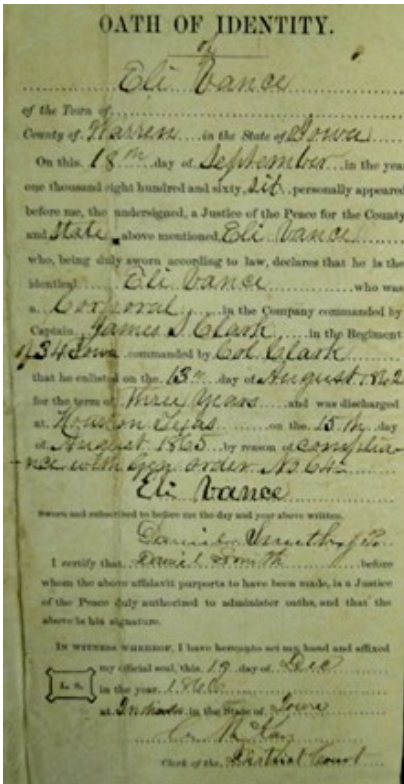 OATH OF IDENTITY.
of
Eli Vance
of the Town of
County of Warren in the State of Iowa
On this 18th day of September in the year
one thousand eight hundred and sixty, six personally appeared
before me, the undersigned, a Justice of the Peace for the County
and State above mentioned, Eli Vance
who, being duly sworn according to law, declares that he is the
identical Eli Vance who was
a Corporal in the Company commanded by
Captain James S Clark in the Regiment
of 34 Iowa commanded by Col Clark
that he enlisted on the 13th day of August 1862
for the term of Three Years and was discharged
at Houston Texas on the 15th day
of August 1865 by reason of complia-
nce with order No 64
Eli Vance
Sworn and subscribed to before me the day and year above written.
Daniel Smith J.P.
I certify that Daniel Smith before
whom the above affidavit purports to have been made, is a Justice
of the Peace duly authorized to administer oaths, and that the
above is his signature.
IN WITNESS WHEREOF, I have hereunto set my hand and affixed
my official seal, this 19 day of Dec
L. S. in the year 1866
at in the State of Iowa
Clerk of the District Court